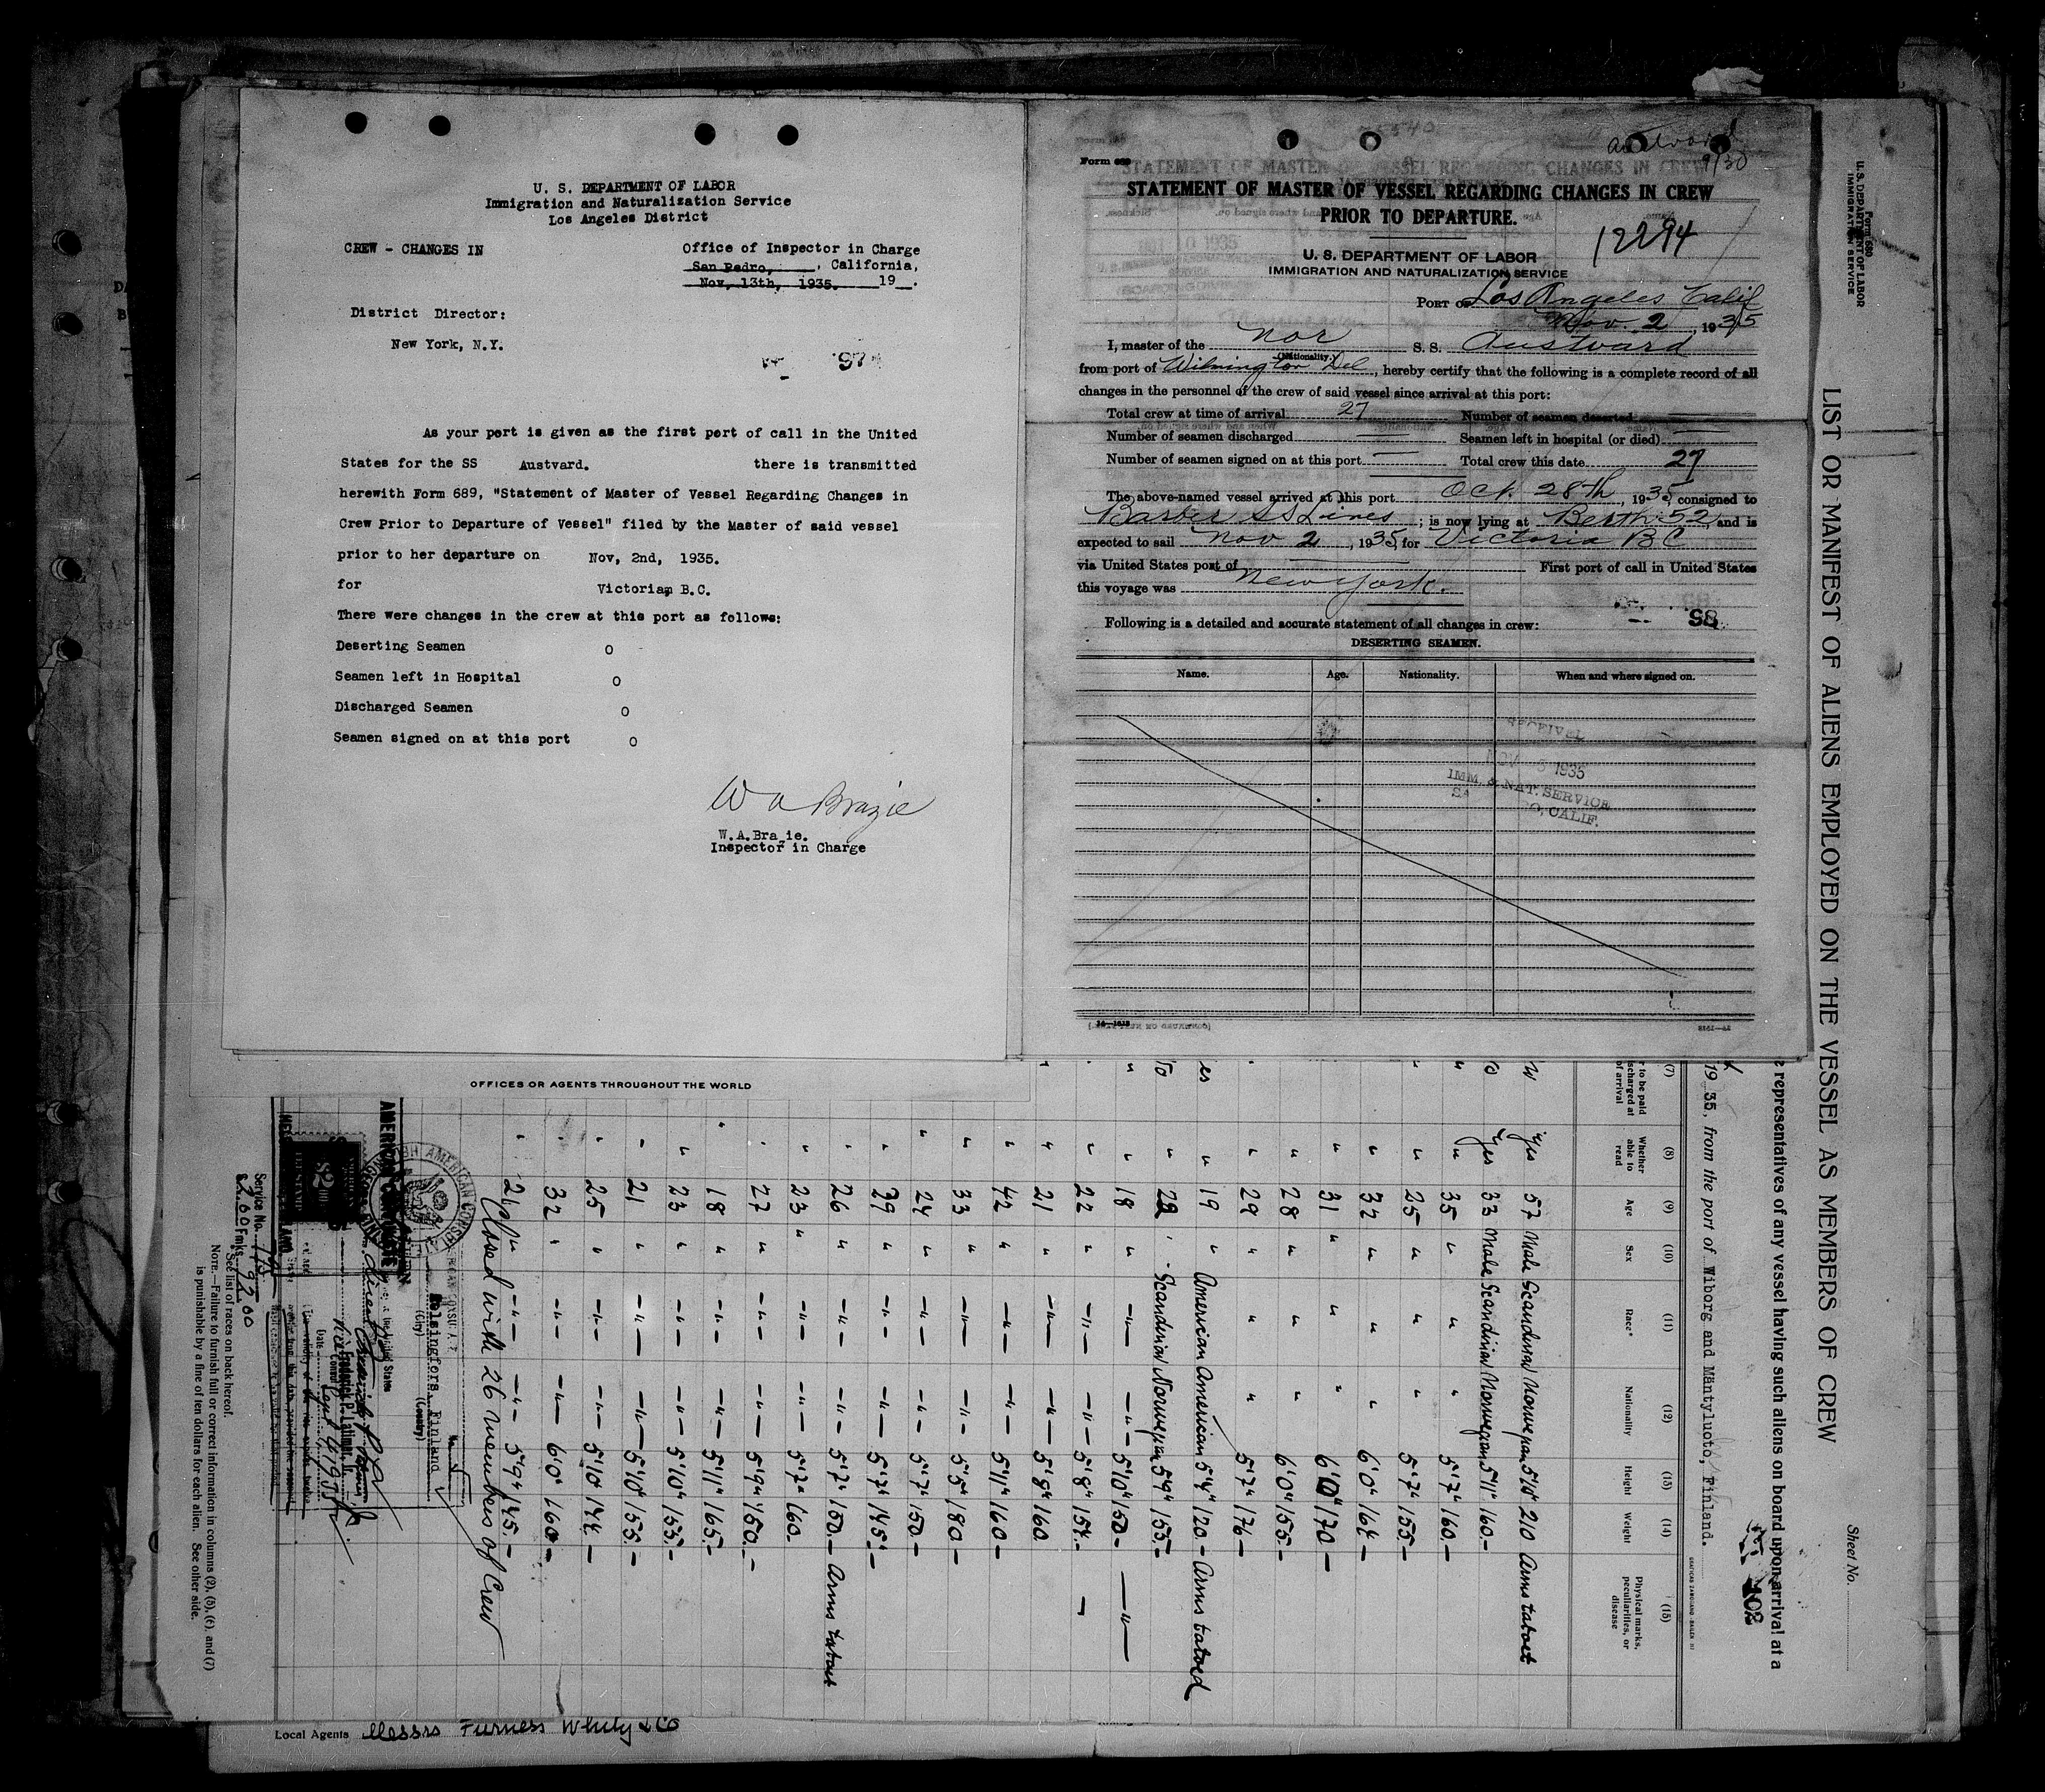 U. S. DEPARTMENT OF LABOR
Immigration and Naturalization Service
Los Angeles District
CREW - CHANGES IN
Office of Inspector in Charge
San Pedro, , California,
Nov, 13th, 1935. 19 .
District Director:
New York, N.Y.
97
As your port is given as the first port of call in the United
States for the SS Austvard. there is transmitted
herewith Form 689, "Statement of Master of Vessel Regarding Changes in
Crew Prior to Departure of Vessel" filed by the Master of said vessel
prior to her departure on Nov, 2nd, 1935.
for Victoria, B.C.
There were changes in the crew at this port as follows:
Deserting Seamen 0
Seamen left in Hospital 0
Discharged Seamen 0
Seamen signed on at this port 0
W A Brazie
W.A.Brazie.
Inspector in Charge
OFFICES OR AGENTS THROUGHOUT THE WORLD
Austvard
9/30
Form 689
STATEMENT OF MASTER OF VESSEL REGARDING CHANGES IN CREW
PRIOR TO DEPARTURE.
12294
U. S. DEPARTMENT OF LABOR
IMMIGRATION AND NATURALIZATION SERVICE
PORT OF Los Angeles Calif
Nov. 2, 1935
I, master of the Nor S. S. Austvard
(Nationality.)
from port of Wilmington Del, hereby certify that the following is a complete record of all
changes in the personnel of the crew of said vessel since arrival at this port:
Total crew at time of arrival 27 Number of seamen deserted
Number of seamen discharged Seamen left in hospital (or died)
Number of seamen signed on at this port Total crew this date 27
The above-named vessel arrived at this port Oct. 28th, 1935, consigned to
Barber SS Lines ; is now lying at Berth 52, and is
expected to sail Nov 2, 1935, for Victoria BC
via United States port of First port of call in United States
this voyage was New York.
98
Following is a detailed and accurate statement of all changes in crew:
DESERTING SEAMEN.
Name. Age. Nationality. When and where signed on.
RECEIVED
NOV 5 1935
IMM. & NAT. SERVICE
CALIF.
Form 680
U.S. DEPARTMENT OF LABOR
IMMIGRATION SERVICE
LIST OR MANIFEST OF ALIENS EMPLOYED ON THE VESSEL AS MEMBERS OF CREW
Sheet No.
representatives of any vessel having such aliens on board upon arrival at a
102
1935, from the port of Wiborg and Mäntyluoto, Finland.
(7) (8) (9) (10) (11) (12) (13) (14) (15)
to be paid discharged at of arrival Whether able to read Age Sex Race* Nationality Height Weight Physical marks, peculiarities, or disease
Yes 57 Male Scandinav Norwegian 5'10" 210 Arms tatoet
Yes 33 Male Scandinav Norwegian 5'11" 160.-
" " 35 " " " 5'7" 160.-
" " 25 " " " 5'7" 155.-
" 32 " " " 6'0" 164-
" 31 " " " 6'0" 170-
" 28 " " " 6'0" 155.-
" 29 " " " 5'7" 176-
" 19 " American American 5'4" 120- Arms tatoed
" 28 " Scandinav Norwegian 5'9" 155.-
" " 18 " -"- -"- 5'10" 150- -"-
" 22 " -"- -"- 5'8" 154.-
" 21 " -"- -"- 5'8" 160.
" 42 " -"- -"- 5'11" 160-
" 33 " -"- -"- 5'5" 180.-
" 24 " -"- -"- 5'7" 150-
" 29 " -"- -"- 5'7" 145.-
" 26 " -"- -"- 5'7" 150.- Arms tatoet
" 23 " -"- -"- 5'7" 160.-
" 27 " -"- -"- 5'9" 150.-
" 18 " -"- -"- 5'11" 165.-
" 23 " -"- -"- 5'10" 155.-
" 21 " -"- -"- 5'10" 155.-
" 25 " -"- -"- 5'10" 144.-
" 32 " -"- -"- 6'0" 160.-
" 21 " -"- -"- 5'9" 145.-
Closed with 26 members of Crew
Helsingfors, Finland
(City) (Country)
Frederick P. Latimer, Jr.
Date Sept 4 1935
Service No. 1192
260 Fmks
*See list of races on back hereof.
NOTE.—Failure to furnish full or correct information in columns (2), (5), (6), and (7)
is punishable by a fine of ten dollars for each alien. See other side.
Local Agents Messrs Furness Withy & Co